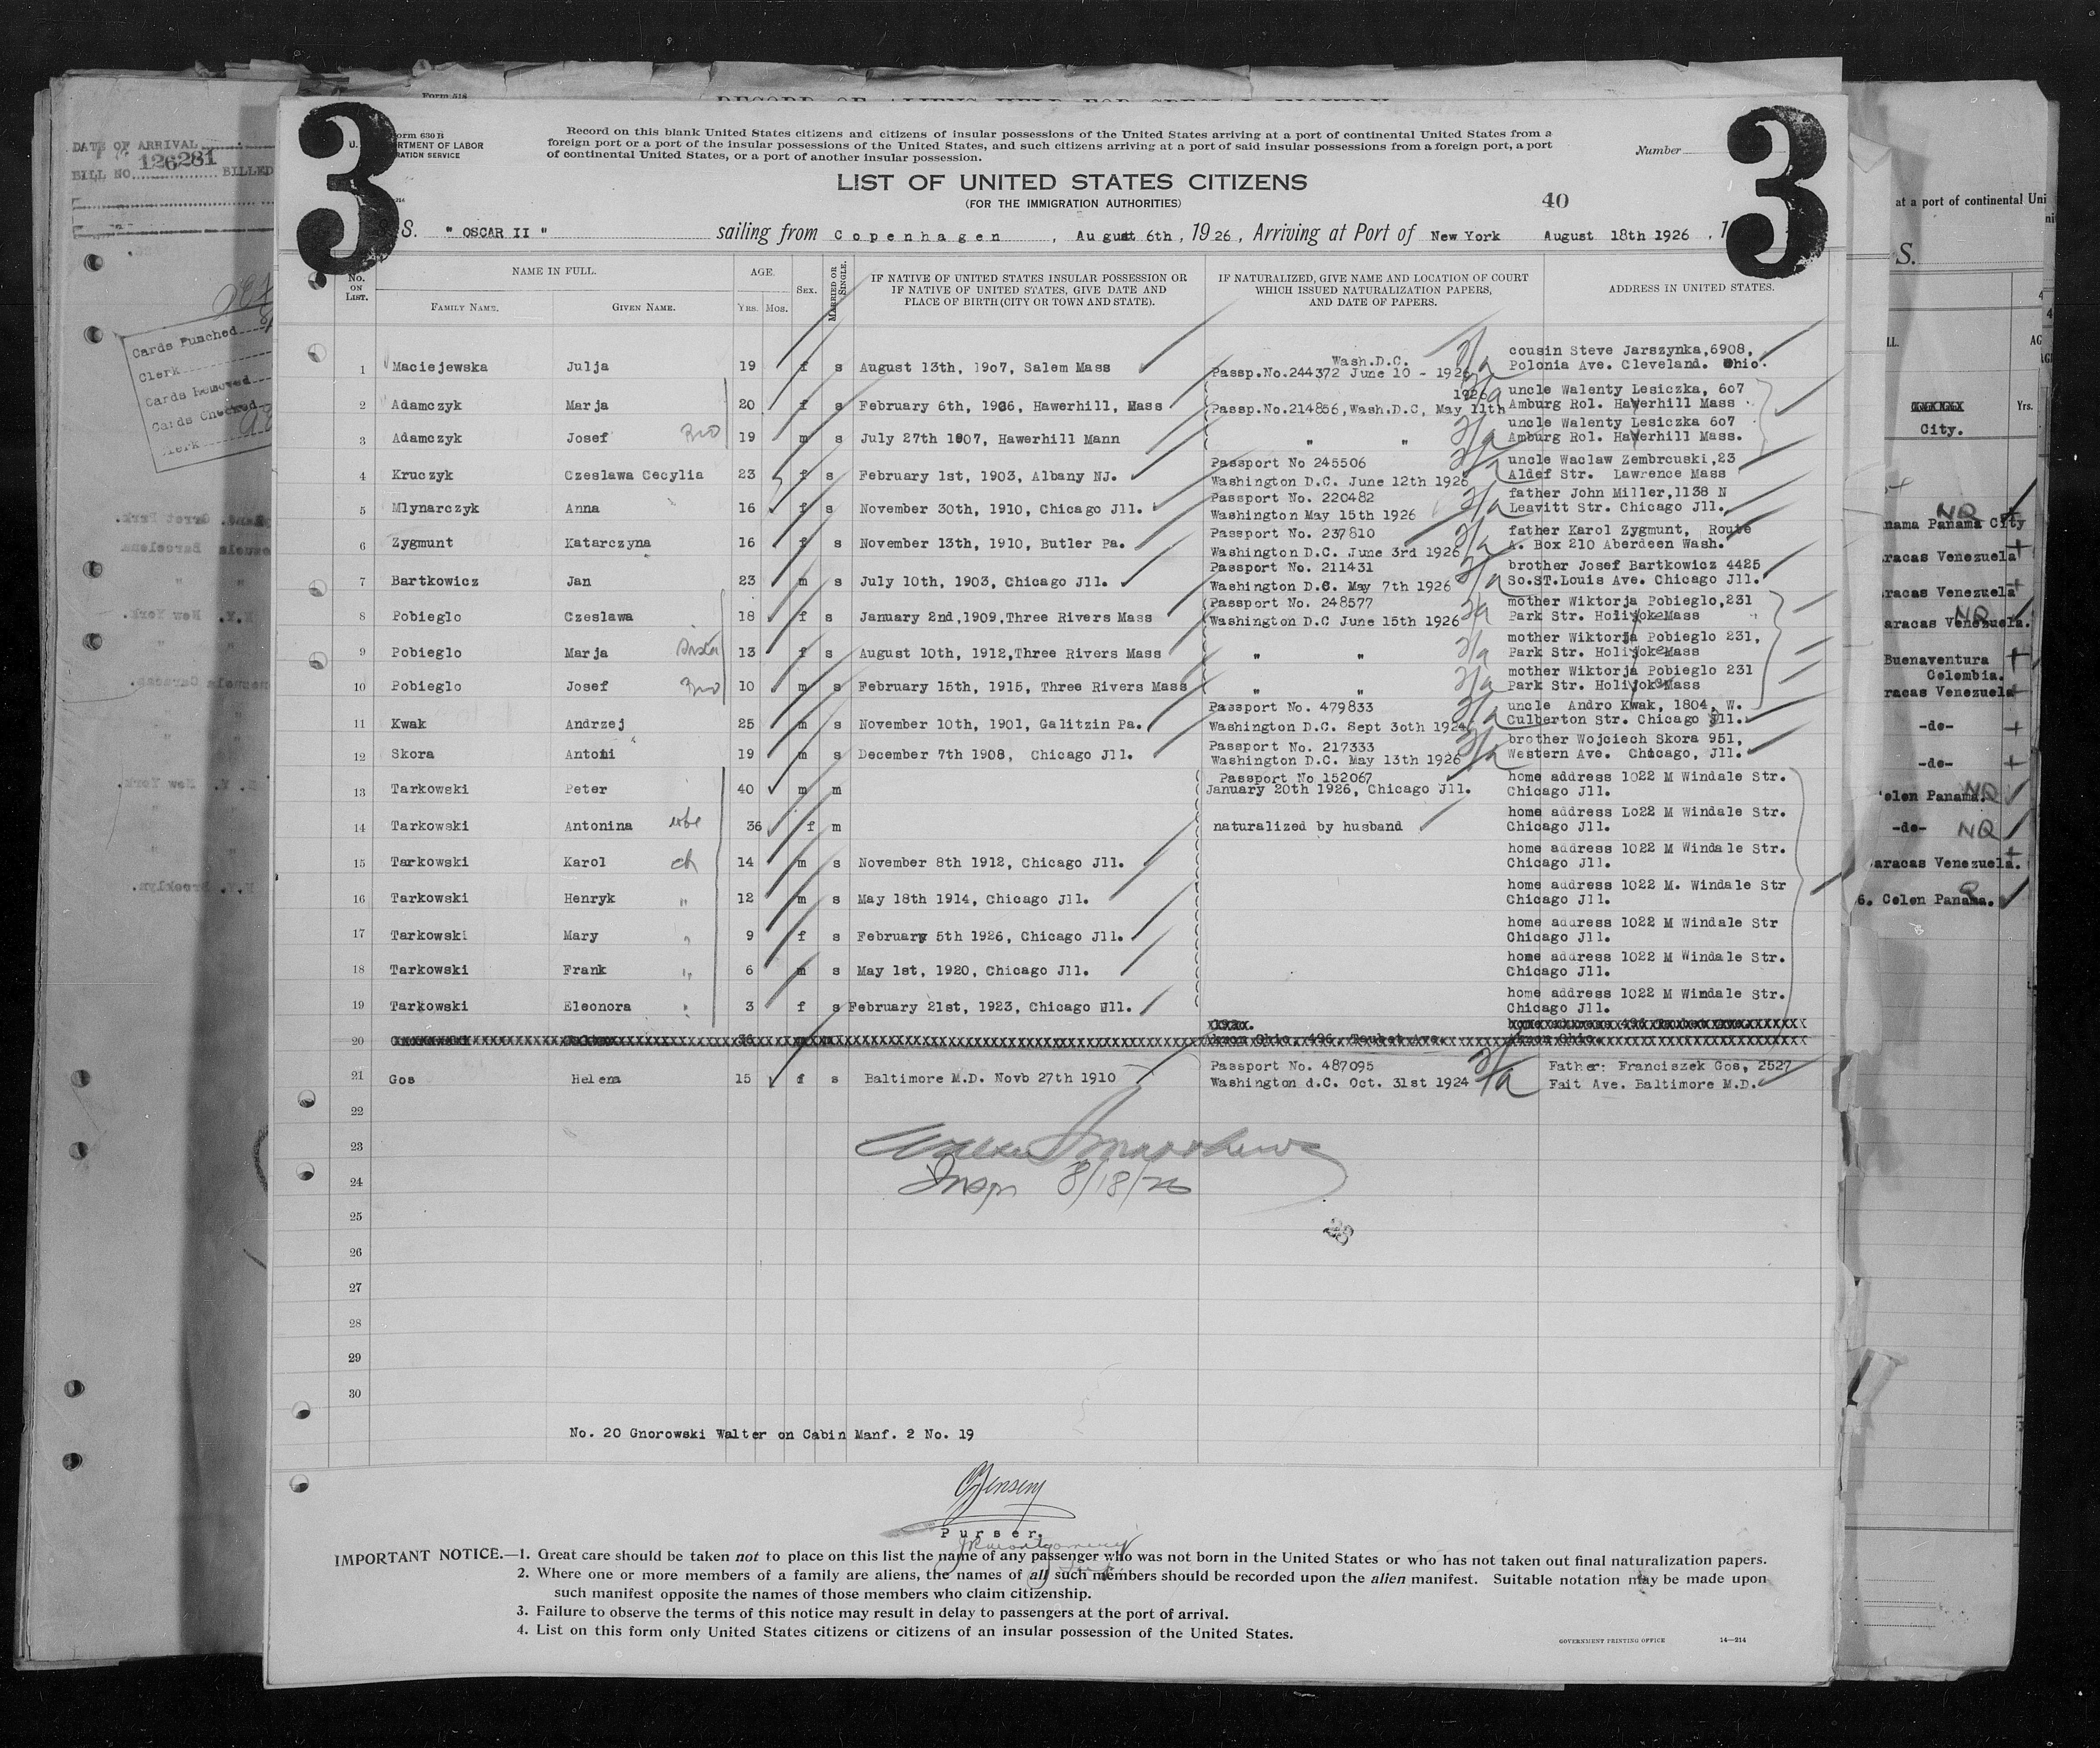 Form 518
DATE OF ARRIVAL
126281
BILL NO. BILLED
Cards Punched
Clerk
Cards Removed
Cards Checked
Clerk
3
3
Form 630 B
U. DEPARTMENT OF LABOR
IMMIGRATION SERVICE
Record on this blank United States citizens and citizens of insular possessions of the United States arriving at a port of continental United States from a
foreign port or a port of the insular possessions of the United States, and such citizens arriving at a port of said insular possessions from a foreign port, a port
of continental United States, or a port of another insular possession.
Number
LIST OF UNITED STATES CITIZENS
(FOR THE IMMIGRATION AUTHORITIES)
40
S. " OSCAR II " sailing from Copenhagen , August 6th , 1926 , Arriving at Port of New York August 18th 1926 , 1
No. ON LIST. NAME IN FULL. AGE. SEX. MARRIED OR SINGLE. IF NATIVE OF UNITED STATES INSULAR POSSESSION OR IF NATIVE OF UNITED STATES, GIVE DATE AND PLACE OF BIRTH (CITY OR TOWN AND STATE). IF NATURALIZED, GIVE NAME AND LOCATION OF COURT WHICH ISSUED NATURALIZATION PAPERS, AND DATE OF PAPERS. ADDRESS IN UNITED STATES.
FAMILY NAME. GIVEN NAME. YRS. MOS.
Wash.D.C. cousin Steve Jarszynka,6908,
1 Maciejewska Julja 19 f s August 13th, 19o7, Salem Mass Passp.No.244372 June 10 - 1926 Polonia Ave. Cleveland. Ohio.
1926 uncle Walenty Lesiczka, 607
2 Adamczyk Marja 20 f s February 6th, 1906, Hawerhill, Mass Passp.No.214856,Wash.D.C, May 11th Amburg Rol. Hawerhill Mass
uncle Walenty Lesiczka 607
3 Adamczyk Josef Bro 19 m s July 27th 1907, Hawerhill Mann " " Amburg Rol. Hawerhill Mass.
Passport No 245506 uncle Waclaw Zembrcuski,23
4 Kruczyk Czeslawa Cecylia 23 f s February 1st, 1903, Albany NJ. Washington D.C. June 12th 1926 Aldef Str. Lawrence Mass
Passport No. 220482 father John Miller,1138 N
5 Mlynarczyk Anna 16 f s November 30th, 1910, Chicago Jll. Washington May 15th 1926 Leavitt Str. Chicago Jll.
Passport No. 237810 father Karol Zygmunt, Route
6 Zygmunt Katarczyna 16 f s November 13th, 1910, Butler Pa. Washington D.C. June 3rd 1926 A. Box 210 Aberdeen Wash.
Passport No. 211431 brother Josef Bartkowicz 4425
7 Bartkowicz Jan 23 m s July 10th, 1903, Chicago Jll. Washington D.C. May 7th 1926 So.ST.Louis Ave. Chicago Jll.
Passport No. 248577 mother Wiktorja Pobieglo,231
8 Pobieglo Czeslawa 18 f s January 2nd,1909,Three Rivers Mass Washington D.C June 15th 1926 Park Str. Holijoke Mass
mother Wiktorja Pobieglo 231,
9 Pobieglo Marja Sister 13 f s August 10th, 1912,Three Rivers Mass " " Park Str. Holijoke Mass
mother Wiktorja Pobieglo 231
10 Pobieglo Josef Bro 10 m s February 15th, 1915, Three Rivers Mass " " Park Str. Holijoke Mass
Passport No. 479833 uncle Andro Kwak, 1804, W.
11 Kwak Andrzej 25 m s November 10th, 1901, Galitzin Pa. Washington D.C. Sept 3oth 1924 Culberton Str. Chicago Jll.
Passport No. 217333 brother Wojciech Skora 951,
12 Skora Antoni 19 m s December 7th 1908, Chicago Jll. Washington D.C. May 13th 1926 Western Ave. Chicago, Jll.
Passport No 152067 home address 1022 M Windale Str.
13 Tarkowski Peter 40 m m January 20th 1926, Chicago Jll. Chicago Jll.
home address Lo22 M Windale Str.
14 Tarkowski Antonina wife 36 f m naturalized by husband Chicago Jll.
home address 1022 M Windale Str.
15 Tarkowski Karol ch 14 m s November 8th 1912, Chicago Jll. Chicago Jll.
home address 1022 M. Windale Str
16 Tarkowski Henryk " 12 m s May 18th 1914, Chicago Jll. Chicago Jll.
home address 1022 M Windale Str
17 Tarkowski Mary " 9 f s February 5th 1926, Chicago Jll. Chicago Jll.
home address 1022 M Windale Str.
18 Tarkowski Frank " 6 m s May 1st, 1920, Chicago Jll. Chicago Jll.
home address 1022 M Windale Str.
19 Tarkowski Eleonora " 3 f s February 21st, 1923, Chicago Jll. Chicago Jll.
20 36 Akron Ohio. 496, Ave. Akron Ohio.
Passport No. 487095 Father: Franciszek Gos, 2527
21 Gos Helena 15 f s Baltimore M.D. Novb 27th 1910 Washington d.C. Oct. 31st 1924 Fait Ave. Baltimore M.D.
22
23
24 Inspr 8/18/26
25
26
27
28
29
30
No. 20 Gnorowski Walter on Cabin Manf. 2 No. 19
Jensen
Purser.
IMPORTANT NOTICE.—1. Great care should be taken not to place on this list the name of any passenger who was not born in the United States or who has not taken out final naturalization papers.
2. Where one or more members of a family are aliens, the names of all such members should be recorded upon the alien manifest. Suitable notation may be made upon
such manifest opposite the names of those members who claim citizenship.
3. Failure to observe the terms of this notice may result in delay to passengers at the port of arrival.
4. List on this form only United States citizens or citizens of an insular possession of the United States.
GOVERNMENT PRINTING OFFICE 14—214
at a port of continental Uni
S.
Yrs.
City.
NQ
nama Panama City
racas Venezuela
racas Venezuela
NQ
aracas Venezuela.
Buenaventura
Colombia.
racas Venezuela
-do-
-do-
elen Panama. NQ
-do- NQ
aracas Venezuela.
6. Colen Panama.